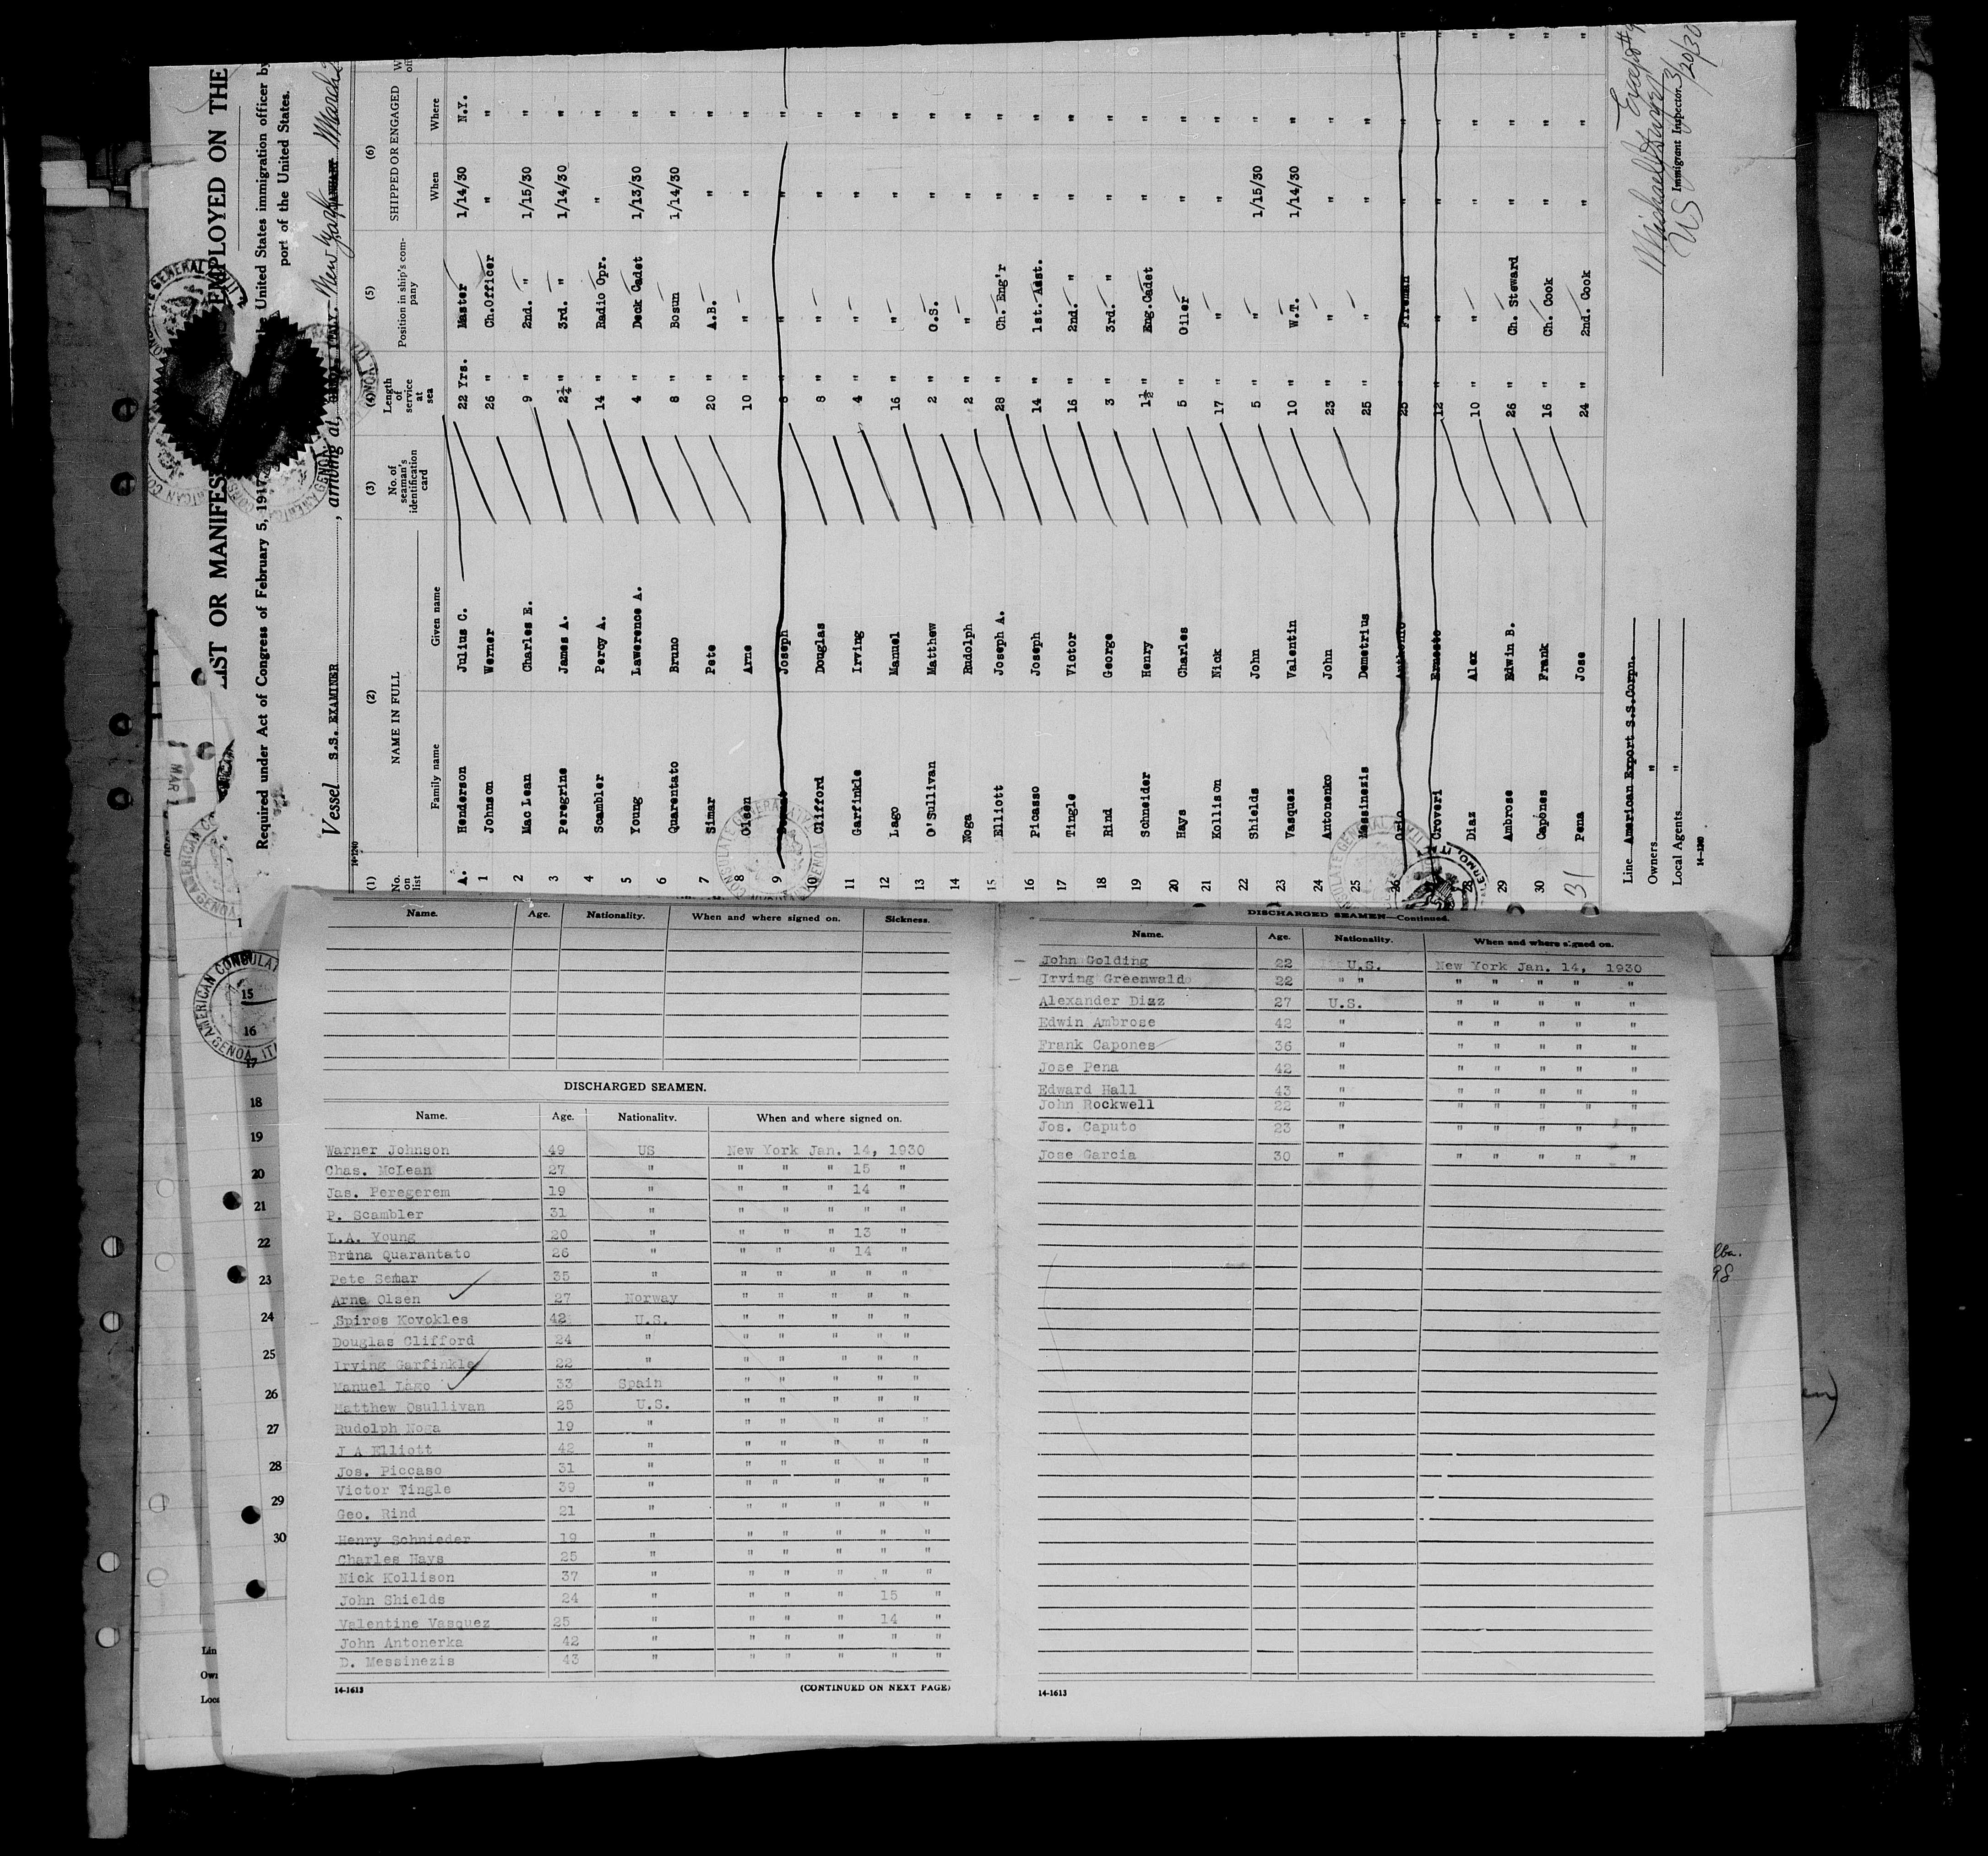 LIST OR MANIFES EMPLOYED ON THE
Required under Act of Congress of February 5, 1917, United States immigration officer by
port of the United States.
Vessel S.S. EXAMINER, arriving at, New York March
14-1240
(1) (2) (3) (4) (5) (6)
No. on list NAME IN FULL No. of seaman's identification card Length of service at sea Position in ship's company SHIPPED OR ENGAGED
Family name Given name When Where
A. Henderson Julius C. 22 Yrs. Master 1/14/30 N.Y.
1 Johnson Werner 26 " Ch.Officer " "
2 Mac Lean Charles E. 9 " 2nd. " 1/15/30 "
3 Peregrine James A. 2¼ " 3rd. " 1/14/30 "
4 Scambler Percy A. 14 " Radio Opr. " "
5 Young Lawerence A. 4 " Deck Cadet 1/13/30 "
6 Quarentato Bruno 8 " Bosun 1/14/30 "
7 Simar Pete 20 " A.B. " "
8 Olsen Arne 10 " " " "
9 Joseph 8 " " " "
10 Clifford Douglas 8 " " " "
11 Garfinkle Irving 4 " " " "
12 Lago Manuel 16 " " " "
13 O'Sullivan Matthew 2 " O.S. " "
14 Noga Rudolph 2 " " " "
15 Elliott Joseph A. 28 " Ch. Eng'r " "
16 Picasso Joseph 14 " 1st. Asst. " "
17 Tingle Victor 16 " 2nd. " " "
18 Rind George 3 " 3rd. " " "
19 Schneider Henry 1½ " Eng.Cadet " "
20 Hays Charles 5 " Oiler " "
21 Kollison Nick 17 " " " "
22 Shields John 5 " " 1/15/30 "
23 Vasquez Valentin 10 " W.T. 1/14/30 "
24 Antonenko John 23 " " " "
25 Messinezis Demetrius 25 " " " "
26 Orio Anthonio 25 " Fireman " "
Croveri Ernesto 12 " " " "
28 Diaz Alex 10 " " " "
29 Ambrose Edwin B. 26 " Ch. Steward " "
30 Capones Frank 16 " Ch. Cook " "
31 Pena Jose 24 " 2nd. Cook " "
Line American Export S.S.Corpn.
Owners "
Local Agents "
14-1240
Except #9
3/20/30
Immigrant Inspector.
US
Name. Age. Nationality. When and where signed on. Sickness.
DISCHARGED SEAMEN.
Name. Age. Nationality. When and where signed on.
Warner Johnson 49 US New York Jan. 14, 1930
Chas. McLean 27 " " " " 15 "
Jas. Peregerem 19 " " " " 14 "
P. Scambler 31 " " " " " "
L.A. Young 20 " " " " 13 "
Bruna Quarantato 26 " " " " 14 "
Pete Semar 35 " " " " " "
Arne Olsen 27 Norway " " " " "
Spiros Kovokles 42 U.S. " " " " "
Douglas Clifford 24 " " " " " "
Irving Garfinkle 22 " " " " " "
Manuel Lago 33 Spain " " " " "
Matthew Osullivan 25 U.S. " " " " "
Rudolph Noga 19 " " " " " "
J A Elliott 42 " " " " " "
Jos. Piccaso 31 " " " " " "
Victor Tingle 39 " " " " " "
Geo. Rind 21 " " " " " "
Henry Schnieder 19 " " " " " "
Charles Hays 25 " " " " " "
Nick Kollison 37 " " " " " "
John Shields 24 " " " " 15 "
Valentine Vasquez 25 " " " " 14 "
John Antonerka 42 " " " " " "
D. Messinezis 43 " " " " " "
14-1613 (CONTINUED ON NEXT PAGE)
DISCHARGED SEAMEN—Continued.
Name. Age. Nationality. When and where signed on.
John Golding 22 U.S. New York Jan. 14, 1930
Irving Greenwald 22 " " " " " " "
Alexander Diaz 27 U.S. " " " " "
Edwin Ambrose 42 " " " " " "
Frank Capones 36 " " " " " "
Jose Pena 42 " " " " " "
Edward Hall 43 " " " " " "
John Rockwell 22 " " " " " "
Jos. Caputo 23 " " " " " "
Jose Garcia 30 " " " " " "
14-1613
1
15
16
17
18
19
20
21
22
23
24
25
26
27
28
29
30